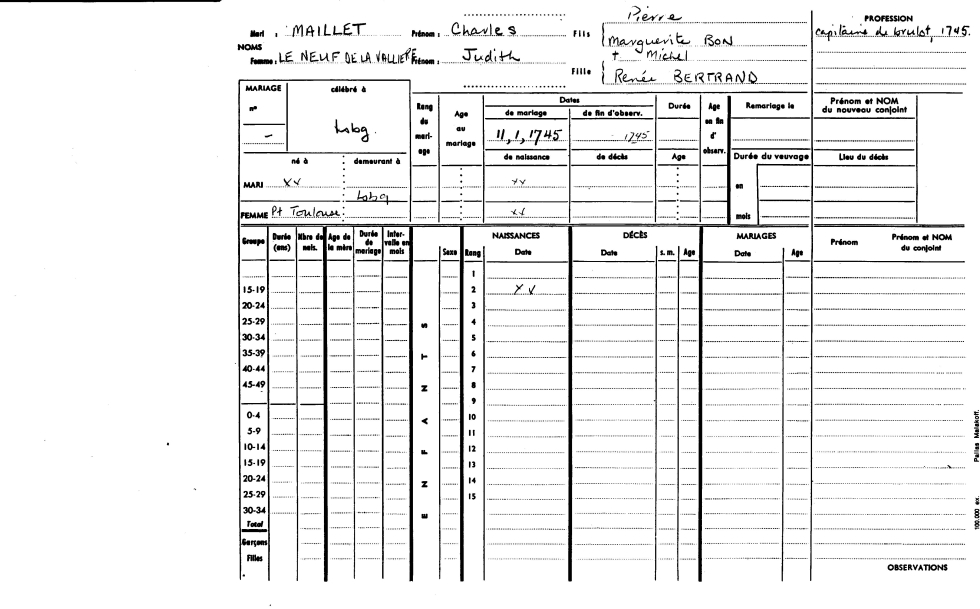 Pierre
PROFESSION
Mari : MAILLET Prénom : Charles Fils Marguerite BON capitaine de brulot, 1745.
NOMS
Femme : LE NEUF DE LA VALLIERE Prénom : Judith Fille † Michel
Renée BERTRAND
MARIAGE célébré à
n° - Lsbg.
Rang de mariage Age au mariage Dates Durée Age en fin d'observ. Remariage le Prénom et NOM du nouveau conjoint
de mariage de fin d'observ.
11, 1, 1745 1745
né à demeurant à de naissance de décès Age Durée du veuvage Lieu du décès
MARI xx Lsbg xx en
FEMME Pt Toulouse xx mois
Groupe Durée (ans) Nbre de nais. Age de la mère Durée de mariage Intervalle en mois Sexe Rang NAISSANCES Date DÉCÈS Date s. m. Age MARIAGES Date Age Prénom Prénom et NOM du conjoint
1
15-19 2 xv
20-24 3
25-29 4
30-34 5
35-39 6
40-44 7
45-49 8
9
0-4 10
5-9 11
10-14 12
15-19 13
20-24 14
25-29 15
30-34
Total
Garçons
Filles
ENFANTS
OBSERVATIONS
100.000 ex. Pallas Malakoff.